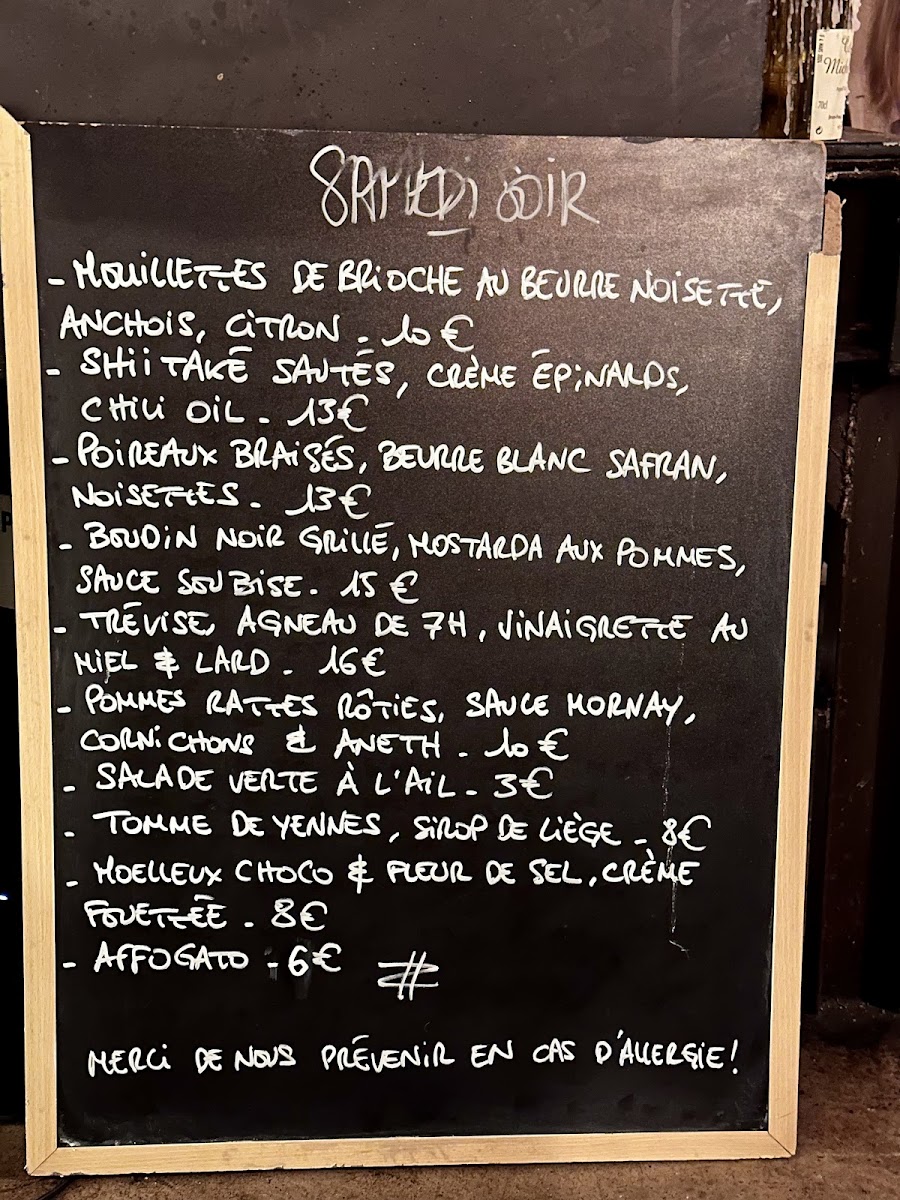 SAMEDI SOIR
- MOUILLETTES DE BRIOCHE AU BEURRE NOISETTE,
ANCHOIS, CITRON - 10 €
- SHIITAKÉ SAUTÉS, CRÈME ÉPINARDS,
CHILI OIL - 13€
- POIREAUX BRAISÉS, BEURRE BLANC SAFRAN,
NOISETTES - 13€
- BOUDIN NOIR GRILLÉ, MOSTARDA AUX POMMES,
SAUCE SOUBISE. 15 €
- TRÉVISE, AGNEAU DE 7H, VINAIGRETTE AU
MIEL & LARD - 16€
- POMMES RATTES RÔTIES, SAUCE MORNAY,
CORNICHONS & ANETH - 10€
- SALADE VERTE À L'AIL - 3€
- TOMME DE YENNES, SIROP DE LIÈGE - 8€
- MOELLEUX CHOCO & FLEUR DE SEL, CRÈME
FOUETTÉE - 8€
- AFFOGATO - 6€
MERCI DE NOUS PRÉVENIR EN CAS D'ALLERGIE!